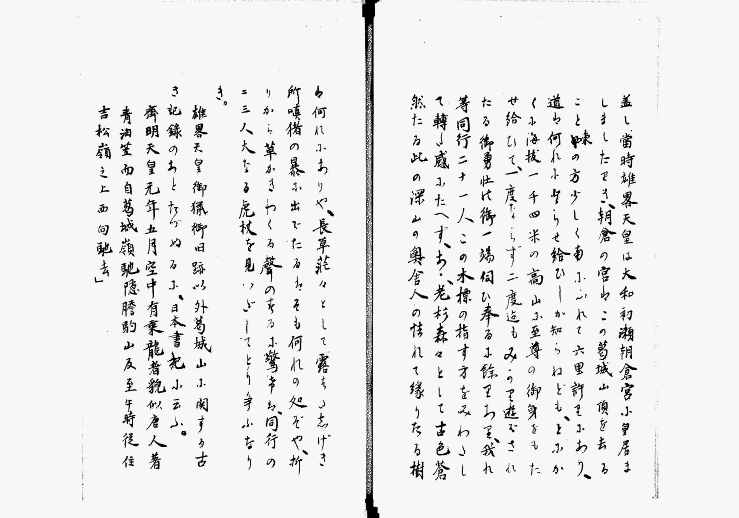 盖し當時雄畧天皇は大和初瀬朝倉宮に皇居ま
しましたでき、朝倉の宮はこの葛城山頂を去る
こと東の方少しく南にふれて六里許りにあり、
道は何れに登らせ給ひしか知らねども、とにか
くに海抜一千四米の高山に至尊の御身をもた
せ給ひて、一度ならず二度迄もみかり遊ざされ
たる御勇壮は御一端伺ひ奉るに餘りあり、我れ
等同行二十一人この木標の指す方をみわたし
て轉た感にたへず、あゝ老杉森々として古色蒼
然たる此の深山の奥舎人の怯れて縁りたる樹
は何れにありや、長草茫々として露もたゞしげき
所嗔猪の暴に出でたるはそも何れの処ぞや、折
りから草かきわくる聲のするに驚けば、同行の
二三人大なる虎杖を見いだしてとり争ふなり
き。
雄畧天皇御猟御旧跡以外葛城山に関する古
き記録のあとたづぬるに、日本書紀に云ふ。
齊明天皇元年五月空中有乗龍者貌似唐人著
青油笠而自葛城嶺馳隠膽駒山及至午時従住
吉松嶺之上西向馳去」